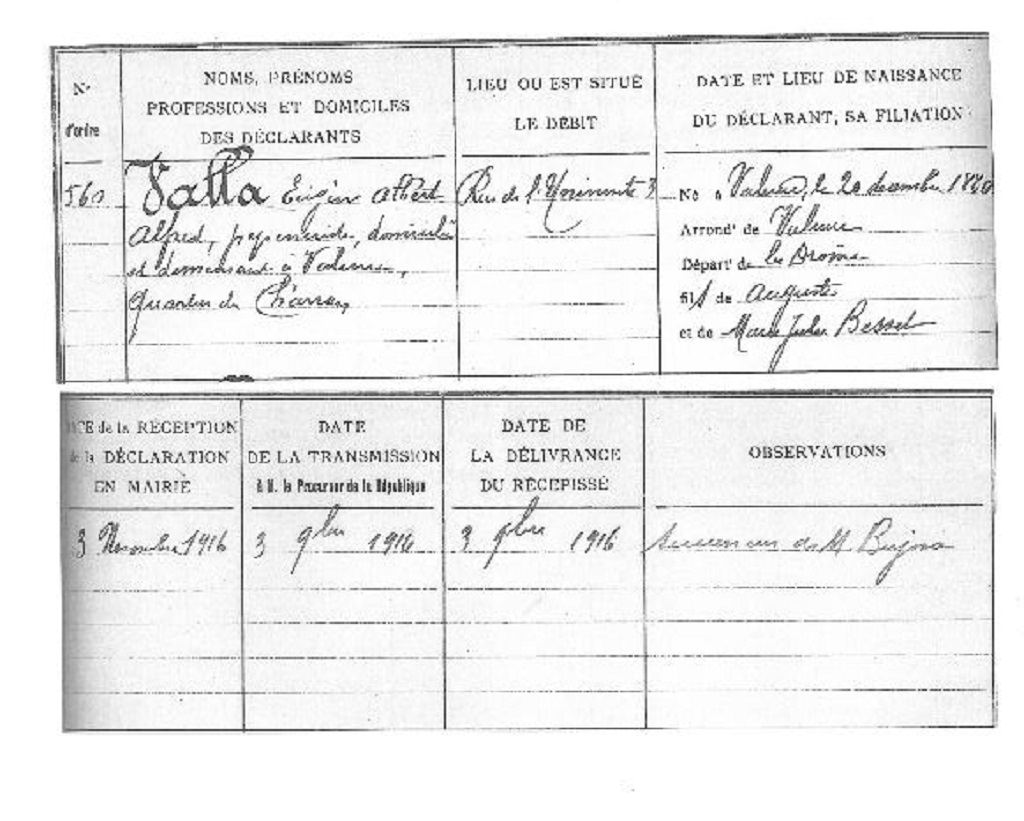 N°
d'ordre
NOMS, PRÉNOMS
PROFESSIONS ET DOMICILES
DES DÉCLARANTS
LIEU OU EST SITUÉ
LE DÉBIT
DATE ET LIEU DE NAISSANCE
DU DÉCLARANT, SA FILIATION
560
Valla Eugène Albert
Alfred, domicilié
et demeurant à Valence,
quartier de
Rue de l'
Né à Valence, le 20 décembre
Arrondt de Valence
Départt de la Drome
fils de Auguste
et de Marie Julie Bessel
DATE de la RÉCEPTION
de la DÉCLARATION
EN MAIRIE
DATE
DE LA TRANSMISSION
à M. le Procureur de la République
DATE DE
LA DÉLIVRANCE
DU RÉCÉPISSÉ
OBSERVATIONS
3 Novembre 1916
3 9bre 1916
3 9bre 1916
Successeur de M